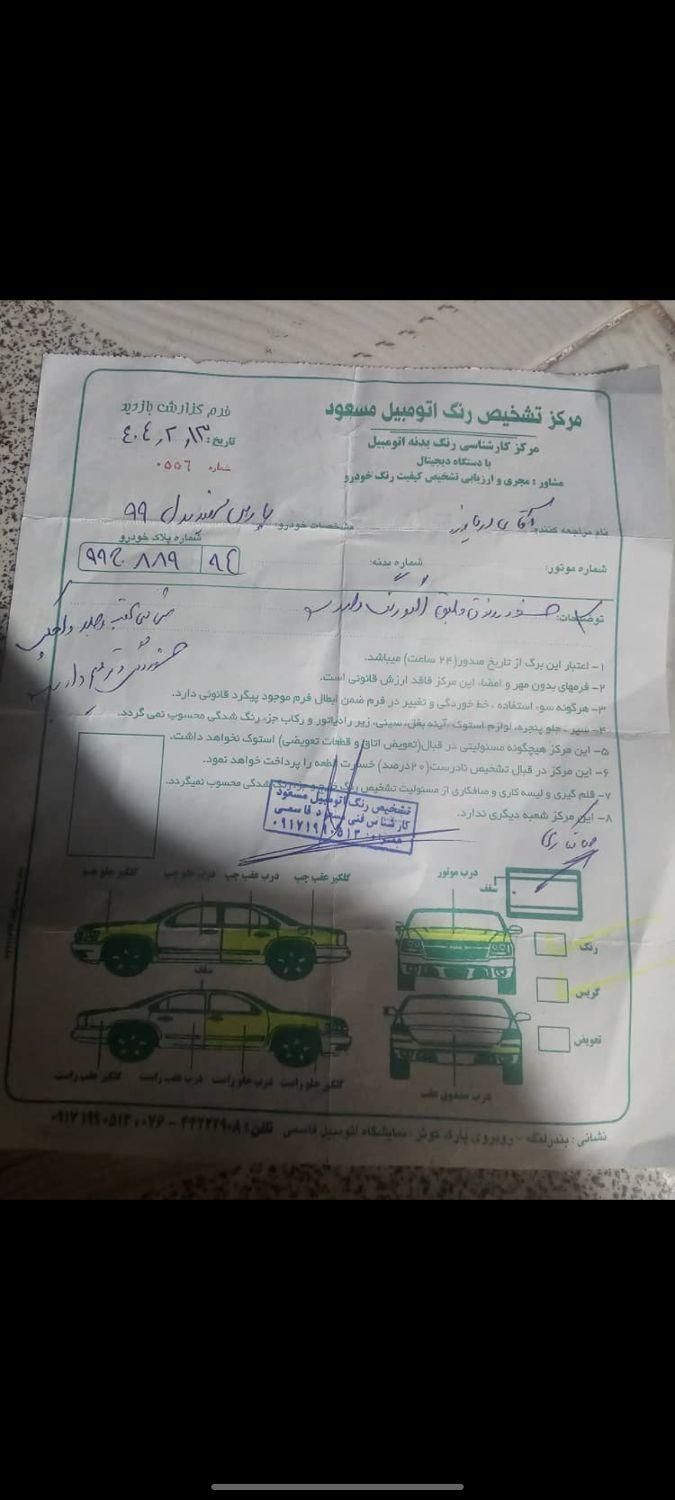 مرکز تشخیص رنگ اتومبیل مسعود
فرم گزارش بازدید
مرکز کارشناسی رنگ بدنه اتومبیل
با دستگاه دیجیتال
مشاور : مجری و ارزیابی تشخیص کیفیت رنگ خودرو
تاریخ: ۴۰۴٫۲٫۱۳
شماره ۰۵۵۶
نام مراجعه کننده: آقای
مشخصات خودرو: پارس سفید مدل ۹۹
شماره موتور:
شماره بدنه:
شماره پلاک خودرو
۹۹ج۸۸۹ ۹۴
توضیحات: خودرو فوق طبق الگو رنگ دارد
خوردگی و ترمیم دارد
۱- اعتبار این برگ از تاریخ صدور(۲۴ ساعت) میباشد.
۲- فرمهای بدون مهر و امضاء این مرکز فاقد ارزش قانونی است.
۳- هرگونه سوء استفاده ، خط خوردگی و تغییر در فرم ضمن ابطال فرم موجود پیگرد قانونی دارد.
۴- سپر ، جلو پنجره، لوازم استوک، آینه بغل، سینی، زیر رادیاتور و رکاب جزء رنگ شدگی محسوب نمی گردد.
۵- این مرکز هیچگونه مسئولیتی در قبال(تعویض اتاق و قطعات تعویضی) استوک نخواهد داشت.
۶- این مرکز در قبال تشخیص نادرست(۲۰درصد) خسارت قطعه را پرداخت خواهد نمود.
۷- قلم گیری و لیسه کاری و صافکاری از مسئولیت تشخیص رنگ خارج و جزء رنگ شدگی محسوب نمیگردد.
۸- این مرکز شعبه دیگری ندارد.
تشخیص رنگ اتومبیل مسعود
کارشناس فنی مسعود قاسمی
۰۹۱۷۱۹۹۰۵۱۳
گلگیر جلو چپ
درب جلو چپ
درب عقب چپ
گلگیر عقب چپ
درب موتور
سقف
رنگ
سقف
گریس
تعویض
گلگیر عقب راست
درب عقب راست
درب جلو راست
گلگیر جلو راست
درب صندوق عقب
نشانی : بندرلنگه - روبروی پارک کوثر ، نمایشگاه اتومبیل قاسمی تلفن : ۴۴۲۲۲۹۰۸ - ۰۷۶ ، ۰۹۱۷۱۹۹۰۵۱۳